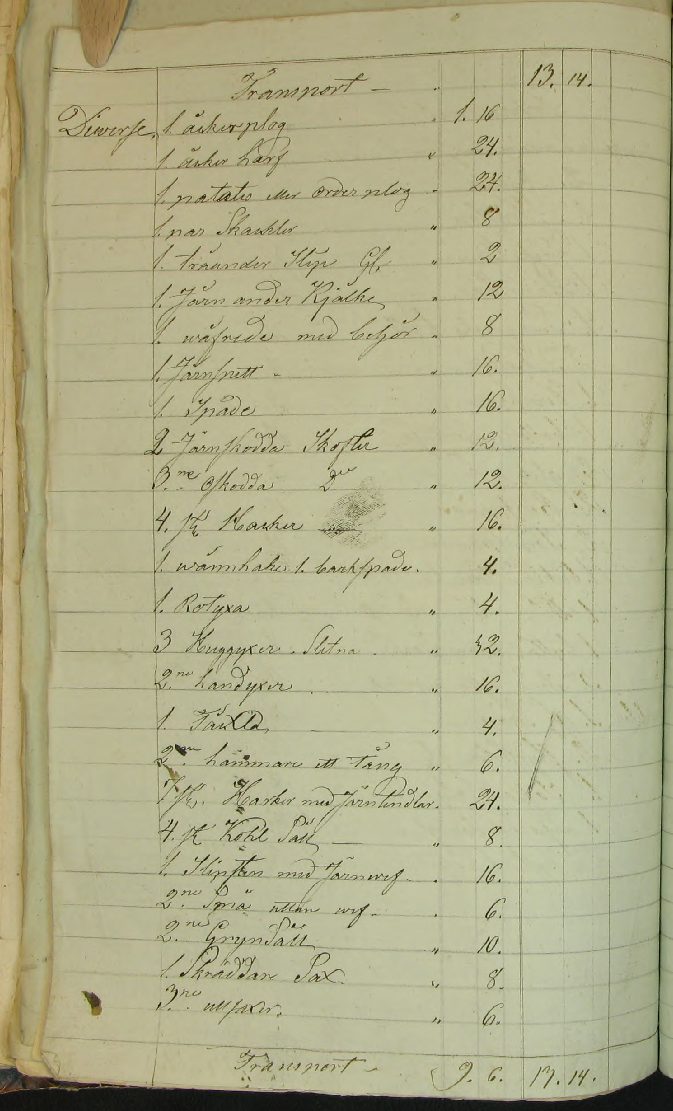 Transport — " 13. 14.
Diverse, 1. åkerplog " 1. 16
1. åker harf " 24.
1. potates eller order plog " 24.
1. par Skacklor " 8
1. träander Slip Gl. " 2
1. Järn ander Kjälke " 12
1. wäfrede med behör " 8
1. Järnspett " 16.
1 Spade " 16.
2 Järnskodda Skoflor " 12.
3.ne Oskodda D:o " 12.
4. st. Hackor " 16.
1. wännhake 1. barkspade. 4.
1. Rotyxa " 4.
3 Huggyxor. Slitna " 32.
2.ne handyxor " 16.
1. Täxla " 4.
2.ne hammare ett tång " 6.
7 st. Harkor med Järntindlar. 24.
4. st Kohl Såll — " 8.
1. Slipsten med Järnwef. 16.
2.ne Små utan wef. 6.
2.ne Grynsåll " 10.
1 Skräddare Sax. " 8.
3.ne ullsaxor. " 6.
Transport 9. 6. 13. 14.